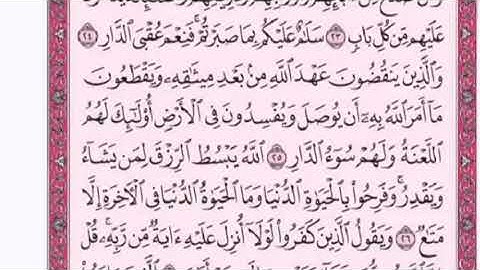 عَلَيْهِم مِّن كُلِّ بَابٍ ٢٣ سَلَٰمٌ عَلَيْكُم بِمَا صَبَرْتُمْ ۚ فَنِعْمَ عُقْبَى ٱلدَّارِ ٢٤
وَٱلَّذِينَ يَنقُضُونَ عَهْدَ ٱللَّهِ مِنۢ بَعْدِ مِيثَٰقِهِۦ وَيَقْطَعُونَ
مَآ أَمَرَ ٱللَّهُ بِهِۦٓ أَن يُوصَلَ وَيُفْسِدُونَ فِى ٱلْأَرْضِ ۙ أُو۟لَٰٓئِكَ لَهُمُ
ٱللَّعْنَةُ وَلَهُمْ سُوٓءُ ٱلدَّارِ ٢٥ ٱللَّهُ يَبْسُطُ ٱلرِّزْقَ لِمَن يَشَآءُ
وَيَقْدِرُ ۚ وَفَرِحُوا۟ بِٱلْحَيَوٰةِ ٱلدُّنْيَا وَمَا ٱلْحَيَوٰةُ ٱلدُّنْيَا فِى ٱلْءَاخِرَةِ إِلَّا
مَتَٰعٌ ٢٦ وَيَقُولُ ٱلَّذِينَ كَفَرُوا۟ لَوْلَآ أُنزِلَ عَلَيْهِ ءَايَةٌ مِّن رَّبِّهِۦ ۗ قُلْ